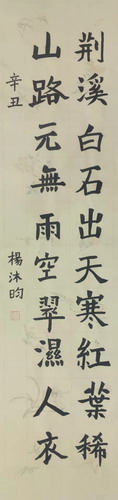 荆溪白石出天寒紅葉稀
山路元無雨空翠濕人衣
辛丑
楊沐昀